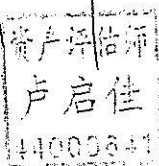 资产评估师
卢启佳
44000841